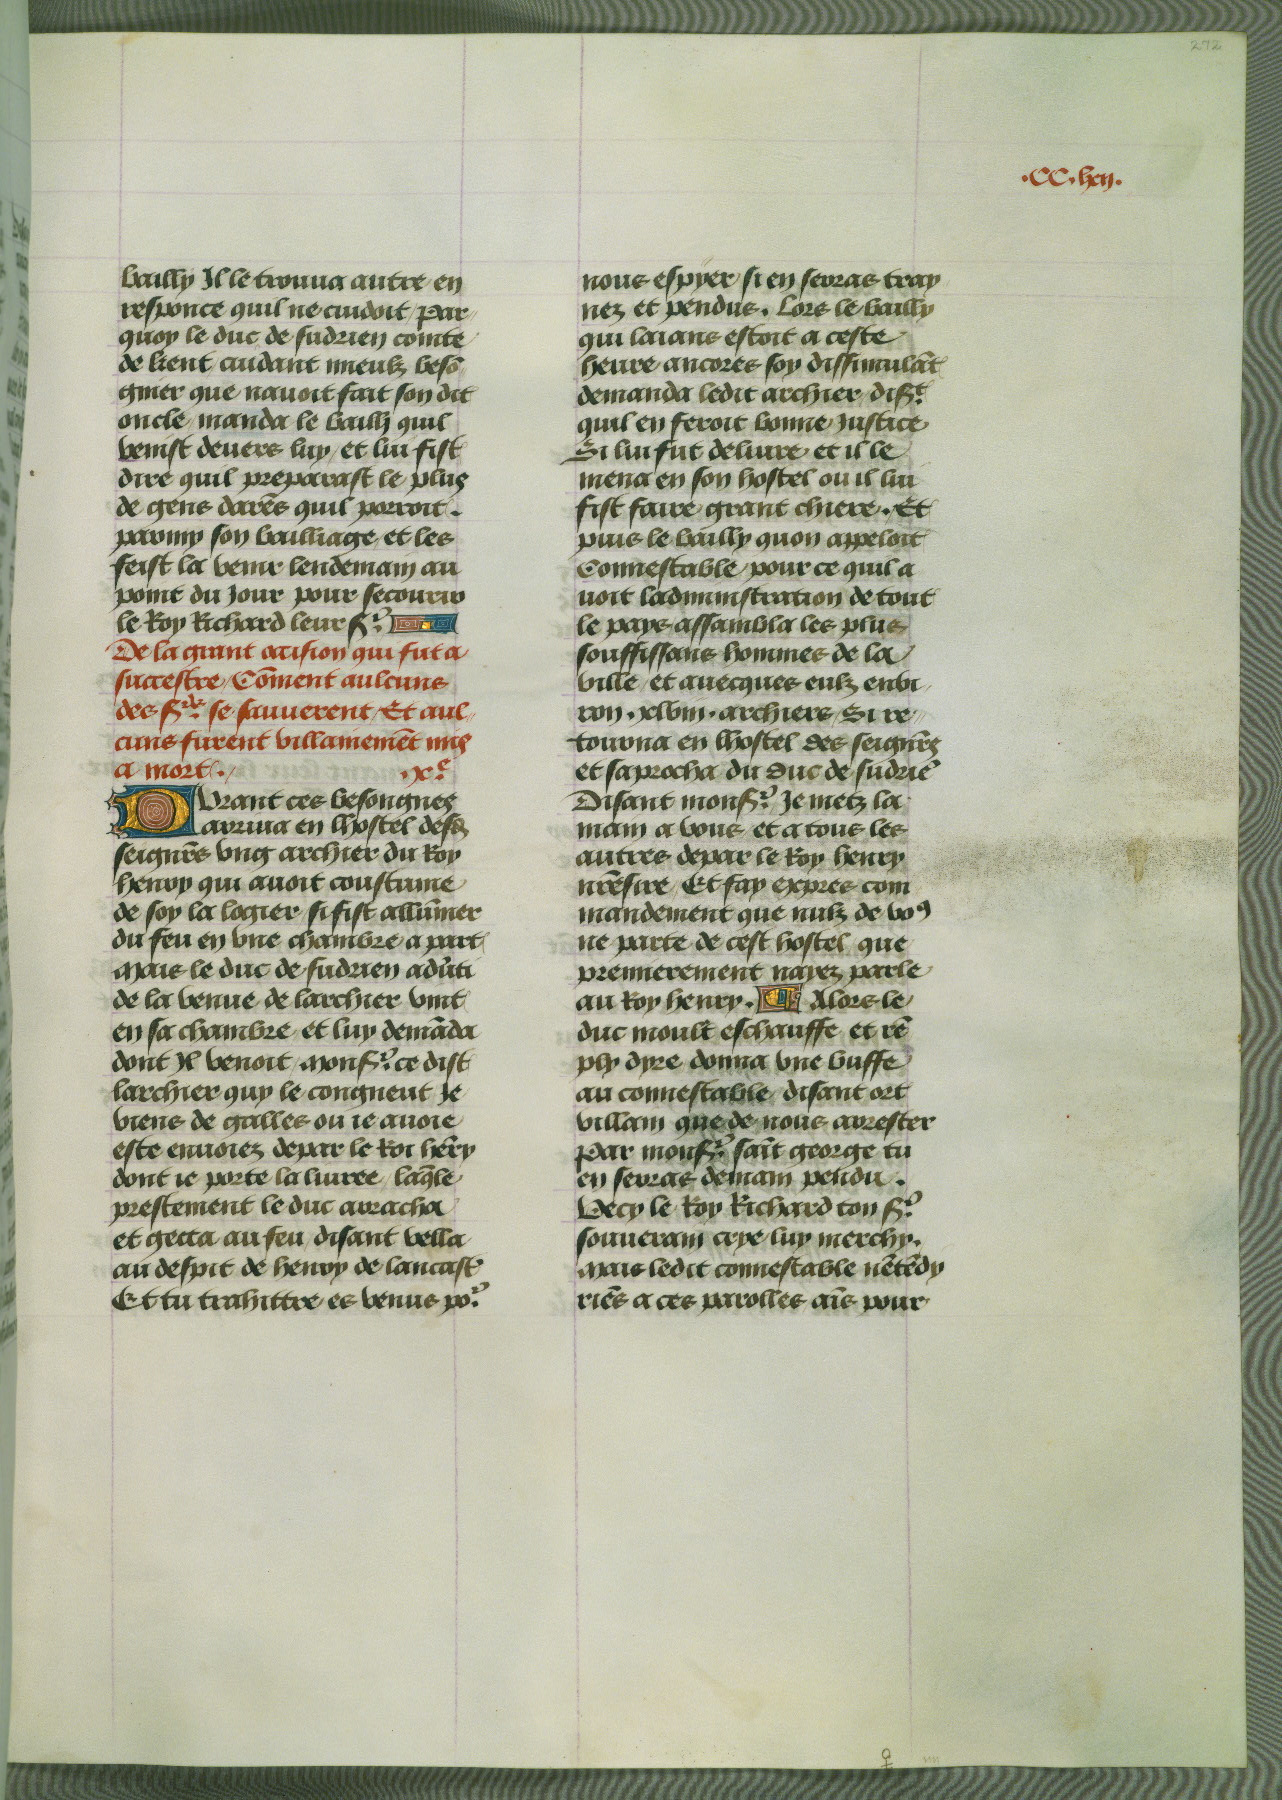 272
·CC·lxxij·
bailly Il le trouua autre en
responce quil ne cuidoit / Par
quoy le duc de sudrien conte
de kent cuidant mieulz beso᷑
gnier que nauoit fait son dit
oncle manda le bailly quil
venist deuers luy / et lui fist
dire quil preparast le plus
de gens darm̄es quil porroit .
parmy son bailliage et les
feist la venir lendemain au
point du Jour pour secourir
le Roy Richard leur sr̄
De la grant occision qui fut a
succestre / Cōment aulcuns
des srs̄ se sauuerent / Et aul
cuns furent villainemēt mis
a mort . .xe.
Durant ces besongnes
arriua en lhostel desd
seignrs̄ vng archier du Roy
henry qui auoit coustume
de soy la logier / si fist allūmer
du feu en vne chambre a part
Mais le duc de sudrien aduti
de la venue de larchier vint
en sa chambre et luy demāda
dont Il venoit / Monsr̄ ce dist
larchier quy le congneut Je
viens de galles ou ie auoie
este enuoiez depar le Roi hēry
dont ie porte la liuree / laq̄le
prestement le duc arracha
et getta au feu / disant vella
au despit de henry de lancast̄
Et tu trahittre es venus po᷑
nous espyer / si en seras tray
nez et pendus . Lors le bailly
qui laians estoit a ceste
heure ancores soy dissimulāt
demanda ledit archier / dist̄
quil en feroit bonne Justice
Si lui fut deliure et il le
mena en son hostel ou il lui
fist faire grant chiere . Et
puis le bailly quon appeloit
Connestable / pour ce quil a
uoit ladministration de tout
le pays assambla les plus
souffissans hommes de la
ville / et auecques eulz enui
ron . xlviii . archiers / Si re
tourna en lhostel des seignr̄s
et saprocha du duc de sudriē
Disant monsr̄ Je metz la
main a vous et a tous les
autres depar le Roy henry
nr̄e sire / Et fay expres com
mandement que nulz de voꝰ
ne parte de cest hostel que
premierement nayez parle
au Roy henry . Alors le
duc moult eschauffe et rē
ply dyre donna vne buffe
au connestable disant ort
villain que de nous arrester
Par monsr̄ sai̅t george tu
en seras demain pendu .
Vecy le Roy Richard ton sr̄
souuerain crye luy merchy .
Mais ledit connestable nētēdy
riēs a ces parolles ai̅s pour